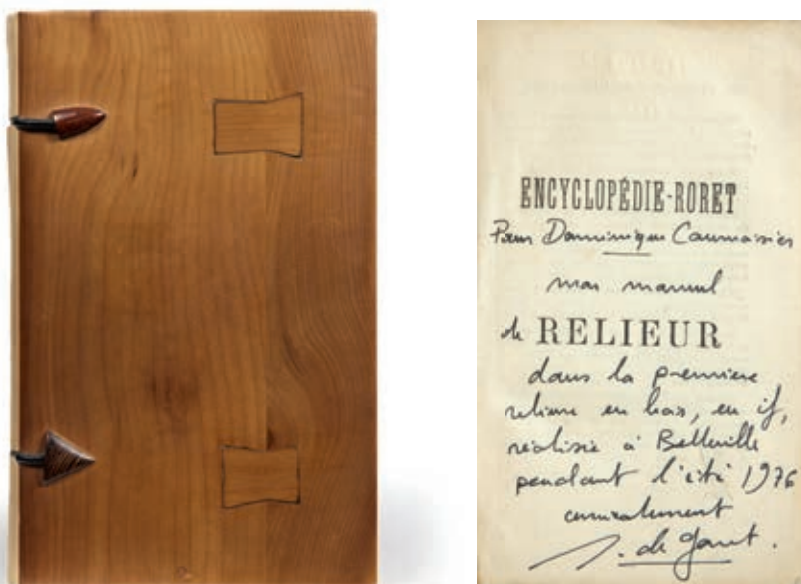 ENCYCLOPÉDIE-RORET
Pour Dominique Courvoisier
mon manuel
de RELIEUR
dans la première
reliure en bois, en if,
réalisée à Belleville
pendant l'été 1976
amicalement
J. de Gonet.